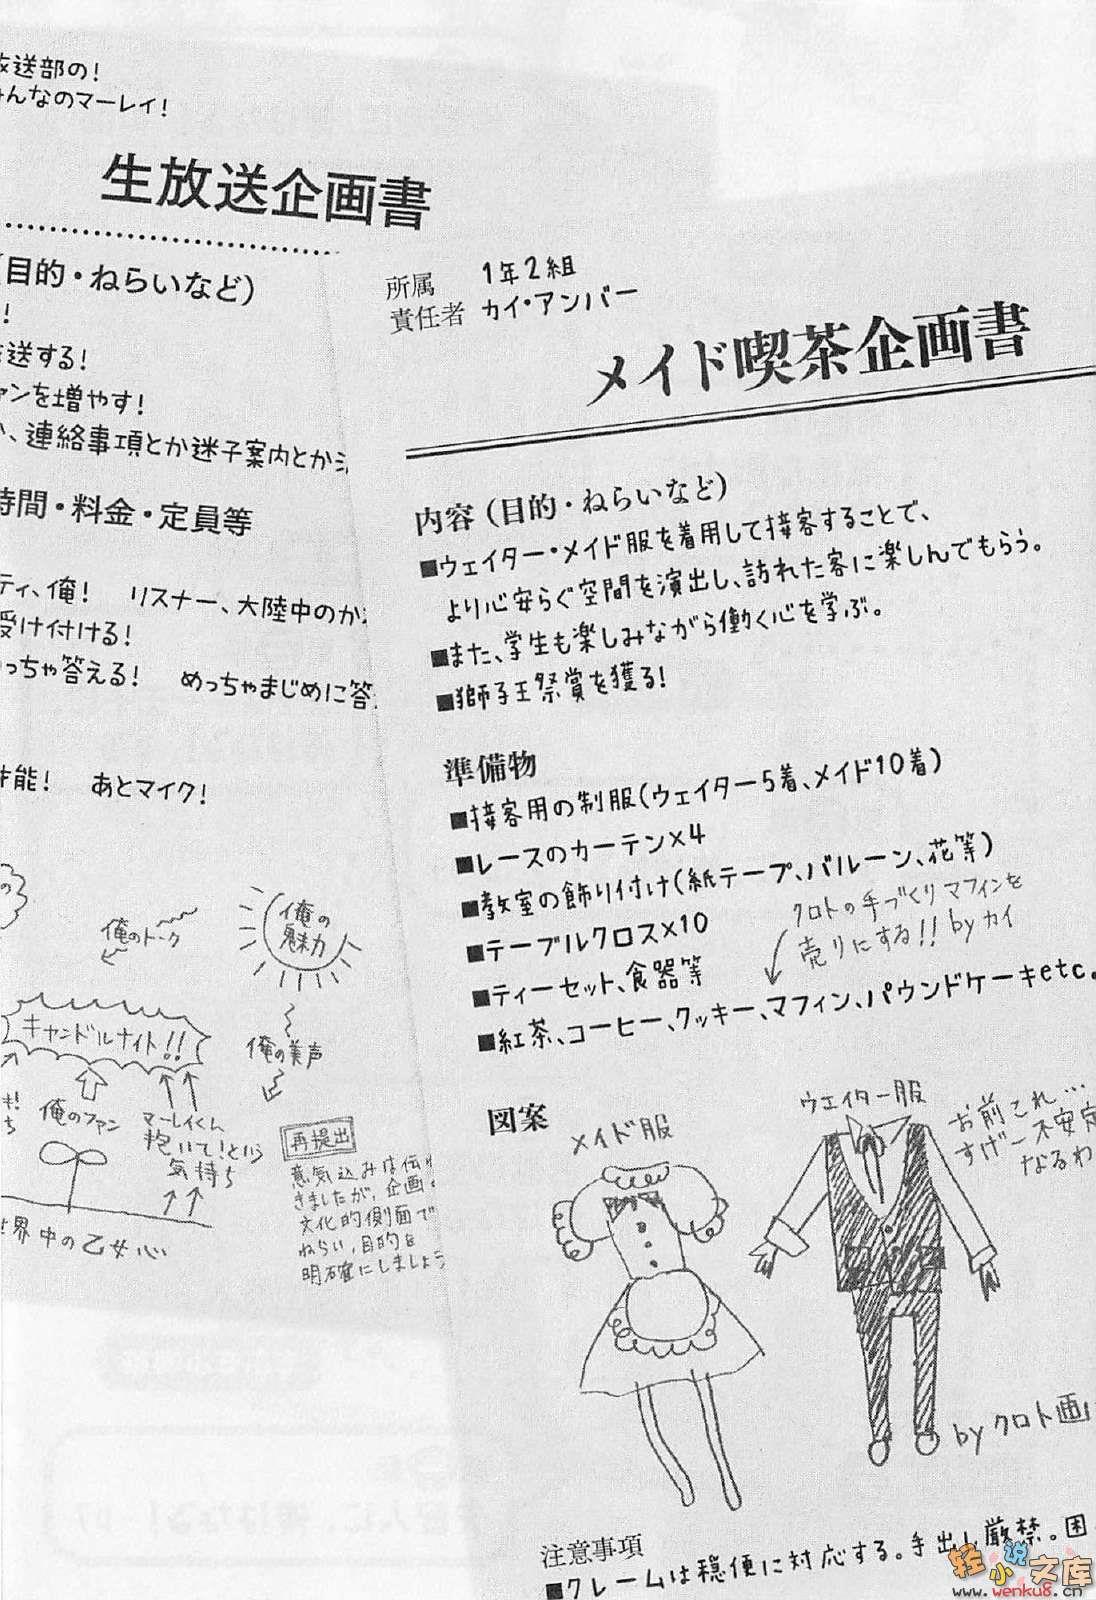 放送部の!
みんなのマーレイ!
生放送企画書
(目的・ねらいなど)
!
送する!
ァンを増やす!
、連絡事項とか迷子案内とか
時間・料金・定員等
ティ、俺! リスナー、大陸中のか
受け付ける!
めっちゃ答える! めっちゃまじめに答
才能! あとマイク!
の
俺のトーク
俺の
魅力
キャンドルナイト!!
俺の美声
俺のファン
マーレイくん
抱いて!という
気持ち
世界中の乙女心
再提出
意気込みは伝わ
きましたが、企画
文化的側面で
ねらい、目的を
明確にしましょう
所属 1年2組
責任者 カイ・アンバー
メイド喫茶企画書
内容(目的・ねらいなど)
■ウェイター・メイド服を着用して接客することで、
より心安らぐ空間を演出し、訪れた客に楽しんでもらう。
■また、学生も楽しみながら働く心を学ぶ。
■獅子王祭賞を獲る!
準備物
■接客用の制服(ウェイター5着、メイド10着)
■レースのカーテン×4
■教室の飾り付け(紙テープ、バルーン、花等)
■テーブルクロス×10
■ティーセット、食器等
■紅茶、コーヒー、クッキー、マフィン、パウンドケーキetc.
クロトの手づくりマフィンを
売りにする!! by カイ
図案
メイド服
ウェイター服
お前これ…
すげー不安定
なるわ
by クロト画
注意事項
■クレームは穏便に対応する。手出し厳禁。困
轻小说文库
www.wenku8.cn